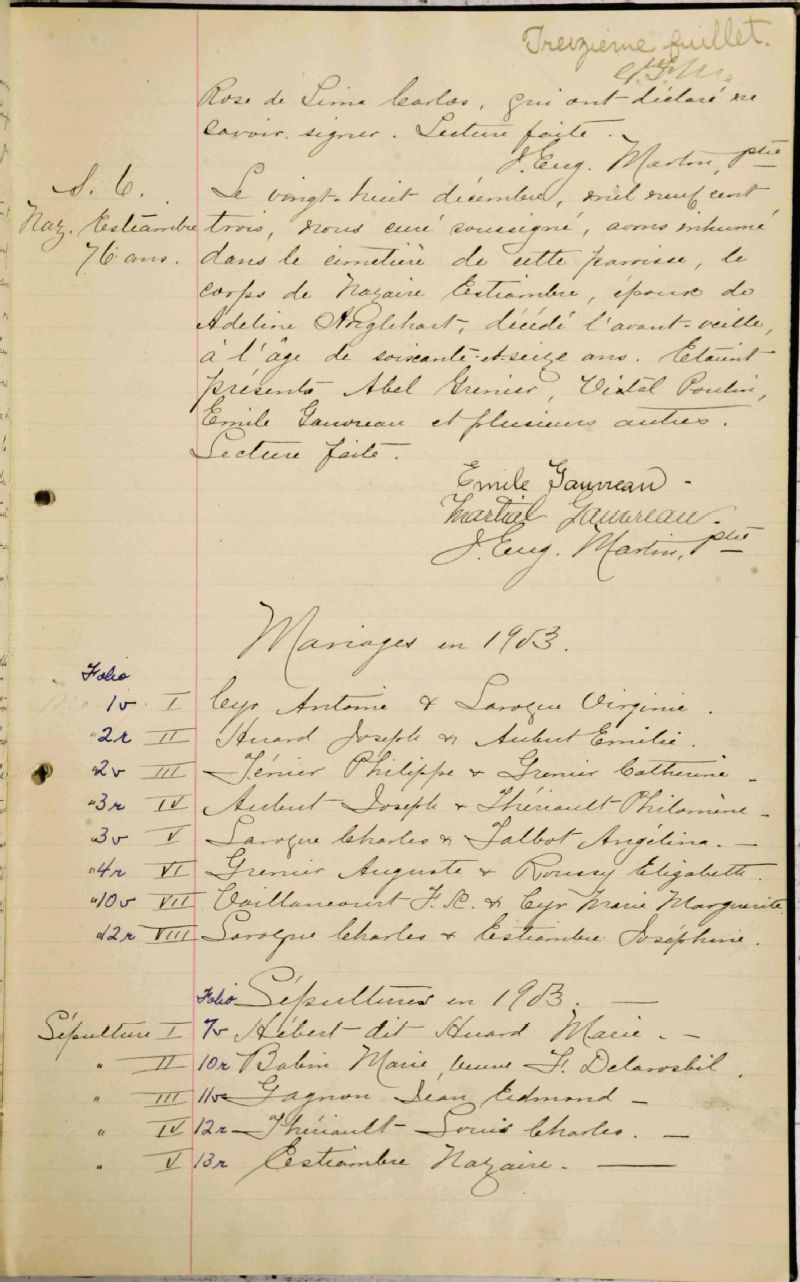 Treizième feuillet.
Rose de Lima Carlos, qui ont déclaré ne
savoir signer. Lecture faite.
J. Eug. Martin, ptre
S. 6.
Naz. Estiambre
76 ans.
Le vingt-huit décembre, mil neuf cent
trois, nous curé soussigné, avons inhumé
dans le cimetière de cette paroisse, le
corps de Nazaire Estiambre, époux de
Adeline Anglehart, décédé l'avant-veille,
à l'âge de soixante-et-seize ans. Etaient
présents Abel Grenier, Vital Poulin,
Emile Gauvreau et plusieurs autres.
Lecture faite.
Emile Gauvreau -
Martial Gauvreau.
J. Eug. Martin, Ptre
Mariages en 1903.
Folio
1v I Cyr Antoine & Larogue Virginie.
"2r II Huard Joseph & Aubut Emilie.
"2v III Ténier Philippe & Grenier Catherine -
"3r IV Aubut Joseph & Thériault Philomène -
"3v V Larogue Charles & Talbot Angélina. -
"4r VI Grenier Auguste & Roussy Elizabeth.
"10v VII Vaillancourt F.X. & Cyr Marie Marguerite
"12r VIII Larogue Charles & Estiambre Joséphine.
Folio Sépultures en 1903. -
Sépulture I 7v Hébert dit Huard Marie. -
" II 10r Babin Marie, veuve F. Delarosbil.
" III 11v Gagnon Jean Edmond -
" IV 12r Thériault Louis Charles. -
" V 13r Estiambre Nazaire. -